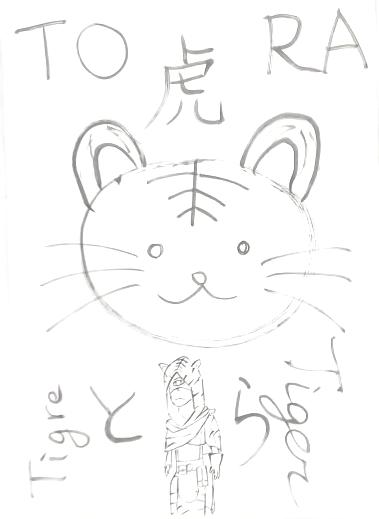 TO 虎 RA
Tigre とら Tiger